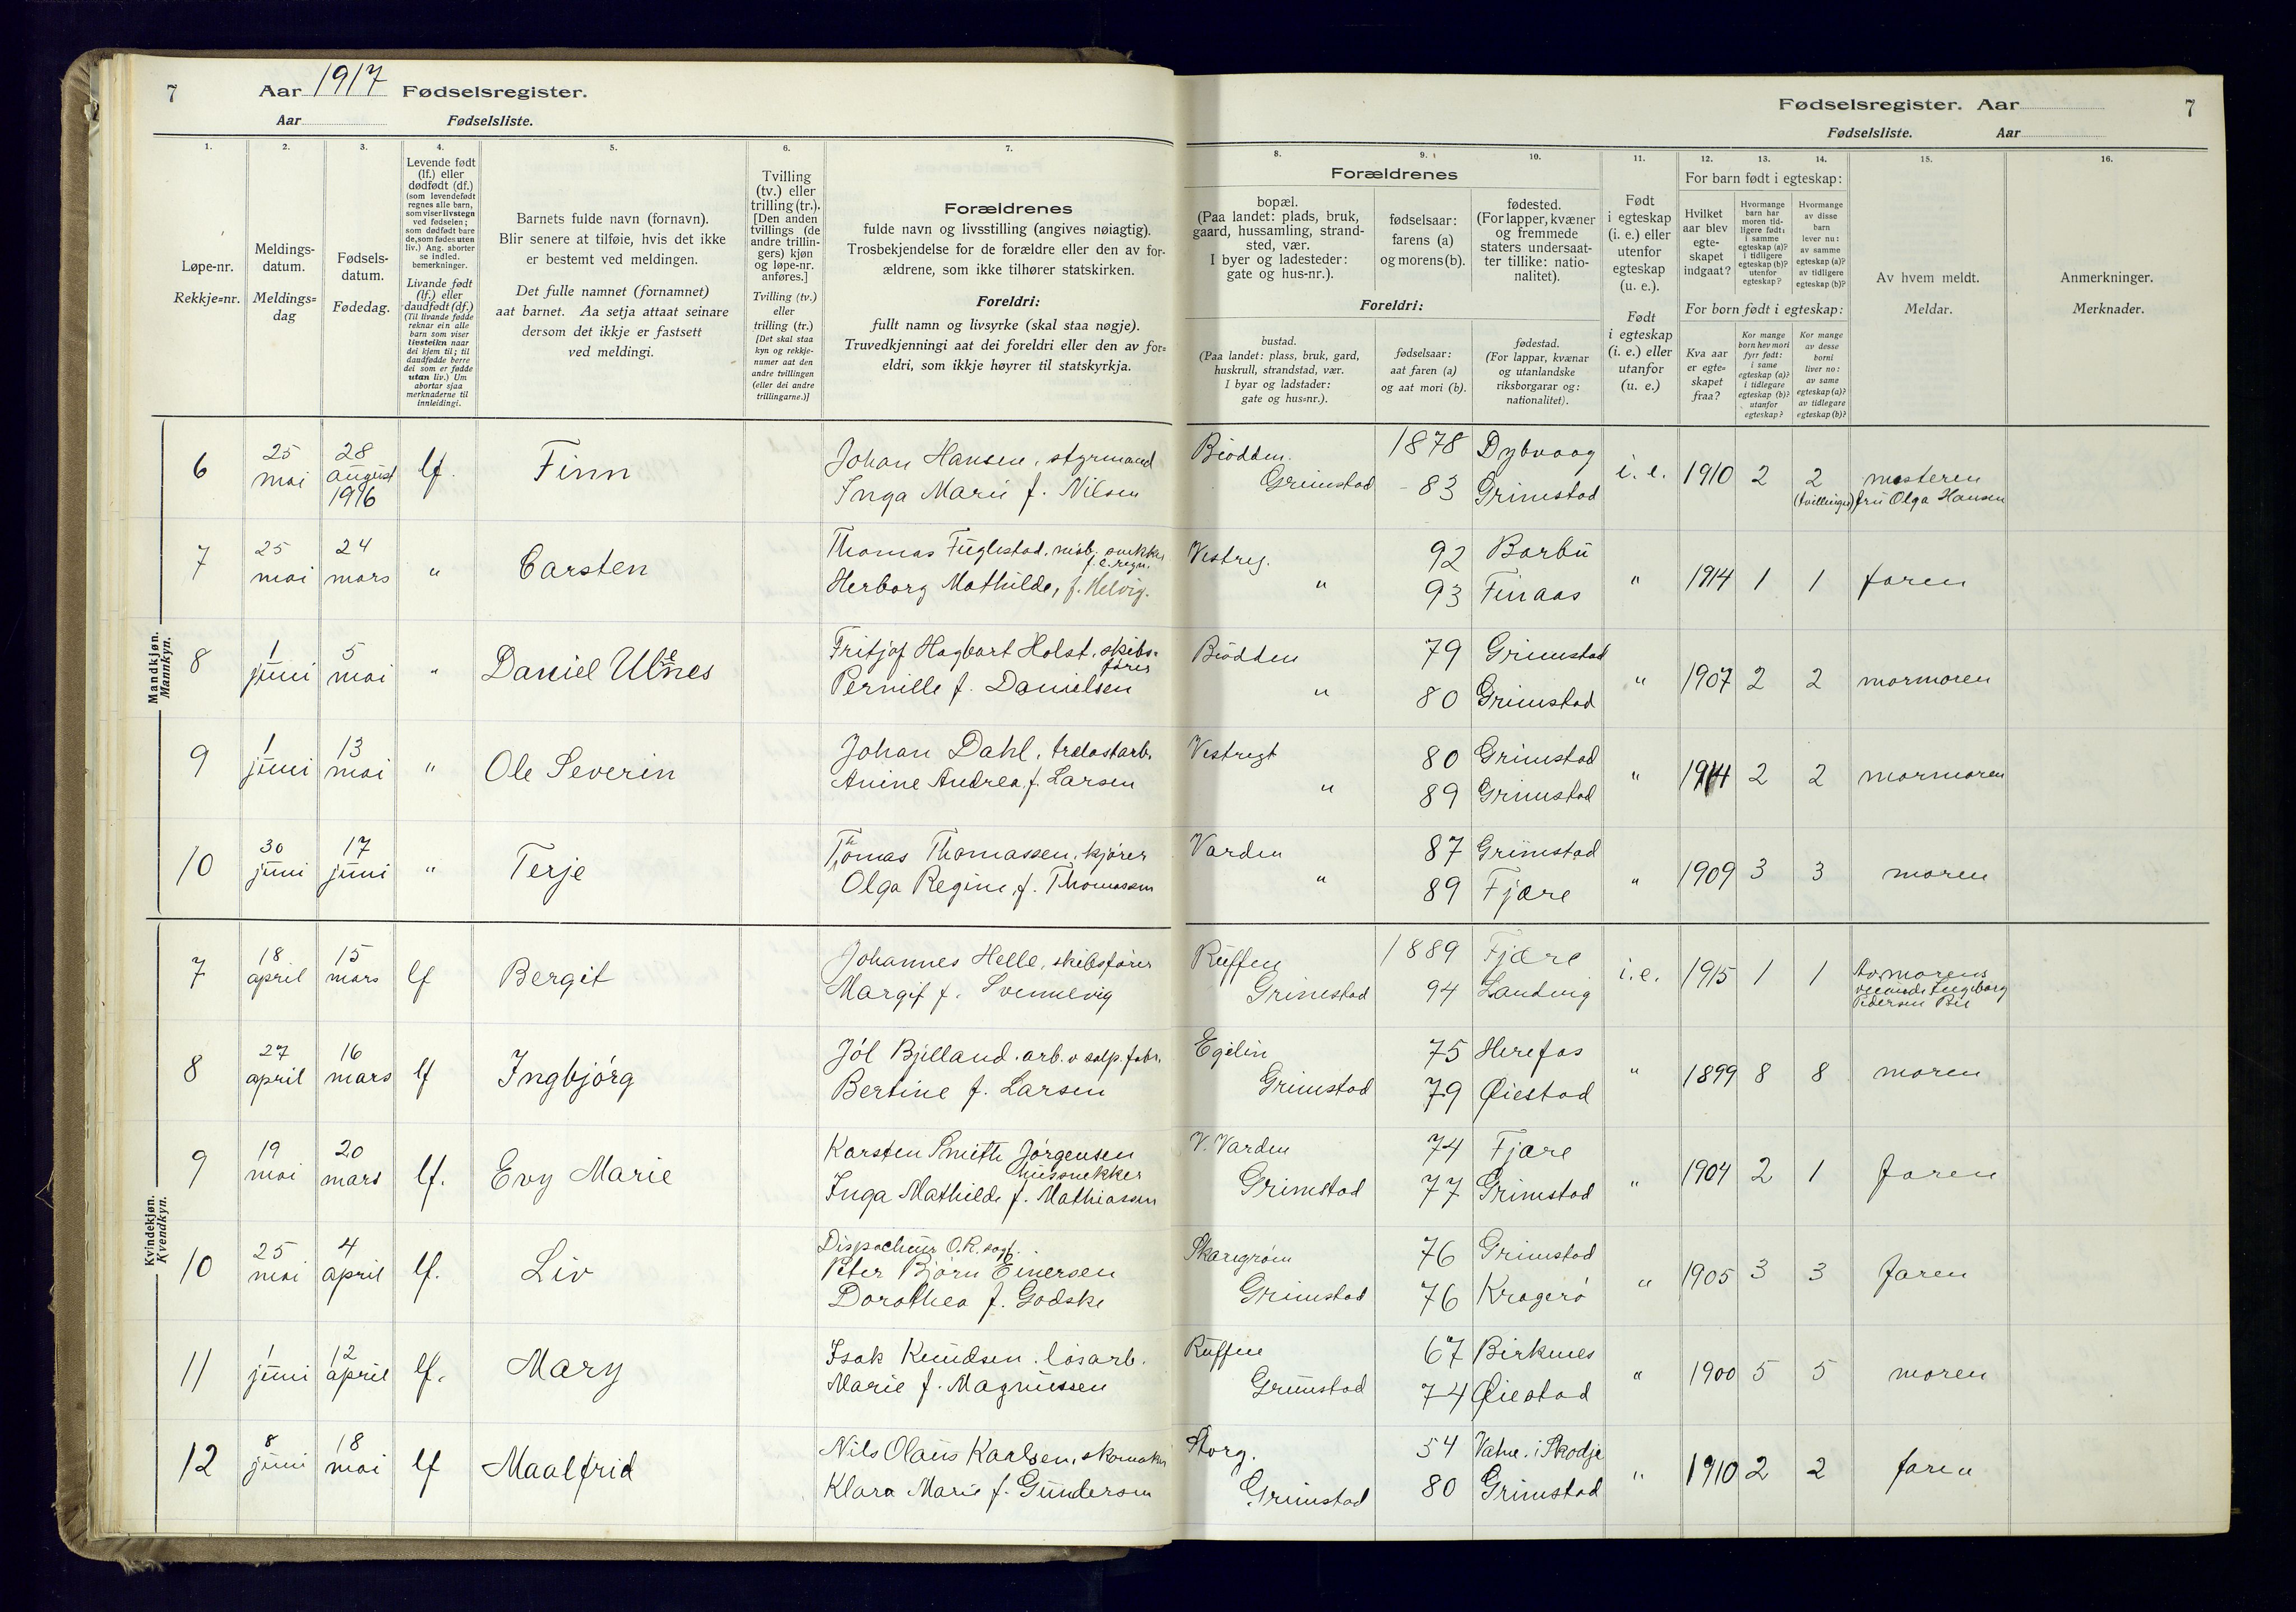 7 Aar 1917 Fødselsregister.
Aar Fødselsliste.
Fødselsregister. Aar 7
Fødselsliste. Aar
1. 2. 3. 4. 5. 6. 7.
Løpe-nr.
Rekkje=nr.
Meldings-
datum.
Meldings=
dag
Fødsels-
datum.
Fødedag.
Levende født
(lf.) eller
dødfødt (df.)
(som levendefødt
regnes alle barn,
som viser livstegn
ved fødselen;
som dødfødt bare
de, som fødes uten
liv.) Ang. aborter
se indled.
bemerkninger.
Livande født
(lf.) eller
daudfødt (df.)
(Til livande fødde
reknar ein alle
barn som viser
livsteikn naar
dei kjem til; til
daudfødde berre
dei som er fødde
utan liv.) Um
abortar sjaa
merknaderne til
innleidingi.
Barnets fulde navn (fornavn).
Blir senere at tilføie, hvis det ikke
er bestemt ved meldingen.
Det fulle namnet (fornamnet)
aat barnet. Aa setja attaat seinare
dersom det ikkje er fastsett
ved meldingi.
Tvilling
(tv.) eller
trilling (tr.).
[Den anden
tvillings (de
andre trillin-
gers) kjøn
og løpe-nr.
anføres.]
Tvilling (tv.)
eller
trilling (tr.)
[Det skal staa
kyn og rekkje-
numer aat den
andre tvillingen
(eller dei andre
trillingarne.)]
Forældrenes
fulde navn og livsstilling (angives nøiagtig).
Trosbekjendelse for de forældre eller den av for-
ældrene, som ikke tilhører statskirken.
Foreldri:
fullt namn og livsyrke (skal staa nøgje).
Truvedkjenningi aat dei foreldri eller den av for=
eldri, som ikkje høyrer til statskyrkja.
8. 9. 10. 11. 12. 13. 14. 15. 16.
Forældrenes
bopæl.
(Paa landet: plads, bruk,
gaard, hussamling, strand-
sted, vær.
I byer og ladesteder:
gate og hus-nr.).
fødselsaar:
farens (a)
og morens (b).
fødested.
(For lapper, kvæner
og fremmede
staters undersaat-
ter tillike: natio-
nalitet).
Foreldri:
bustad.
(Paa landet: plass, bruk, gard,
huskrull, strandstad, vær.
I byar og ladstader:
gate og hus=nr.).
fødselsaar:
aat faren (a)
og aat mori (b).
fødestad.
(For lappar, kvænar
og utanlandske
riksborgarar og:
nationalitet).
Født
i egteskap
(i. e.) eller
utenfor
egteskap
(u. e.).
Født
i egteskap
(i. e.) eller
utanfor
(u. e.)
For barn født i egteskap:
Hvilket
aar blev
egte-
skapet
indgaat?
Hvormange
barn har
moren tid-
ligere født:
i samme
egteskap (a)?
i tidligere
egteskap (b)?
utenfor
egteskap?
Hvormange
av disse
barn
lever nu:
av samme
egteskap (a)?
av tidligere
egteskap (b)?
For born født i egteskap:
Kva aar
er egte=
skapet
fraa?
Kor mange
born hev mori
fyrr født:
i same
egteskap (a)?
i tidlegare
egteskap (b)?
utanfor
egteskap?
Kor mange
av desse
borni
liver no:
av same
egteskap (a)?
av tidlegare
egteskap (b)?
Av hvem meldt.
Meldar.
Anmerkninger.
Merknader.
Mandkjøn.
Mannkyn.
6 25 mai 28 august 1916 lf. Finn
Johan Hansen, styrmand
Inga Marie f. Nilsen
Biodden. 1878 Dybvaag
Grimstad 83 Grimstad
i. e. 1910 2 2 mosteren
(tvillinger) fru Olga Hansen
7 25 mai 24 mars " Carsten
Thomas Fuglestad, møb. snekker
f. e. regn.
Herborg Mathilde, f. Helvig.
Vestreg. 92 Barbu
" 93 Finaas
" 1914 1 1 faren
8 1 juni 5 mai " Daniel Ulenes
Fritjof Hagbart Holst, skibs-
fører
Pernille f. Danielsen
Biodden 79 Grimstad
" 80 Grimstad
" 1907 2 2 mormoren
9 1 juni 13 mai " Ole Severin
Johan Dahl, trælastarb.
Anine Andrea f. Larsen
Vestregt 80 Grimstad
" 89 Grimstad
" 1914 2 2 mormoren
10 30 juni 17 juni " Terje
Thomas Thomassen, kjører
Olga Regine, f. Thomassen
Varden 87 Grimstad
" 89 Fjære
" 1909 3 3 moren
Kvindekjøn.
Kvendkyn.
7 18 april 15 mars lf Bergit
Johannes Helle, skibsfører
Margit f. Svennevig
Ruffen 1889 Fjære
Grimstad 94 Landvig
i. e. 1915 1 1 Av morens
veninde Ingeborg
Pedersen Bie
8 27 april 16 mars lf Ingbjørg
Jól Bjelland. arb. v salp. fabr.
Bertine f. Larsen
Egelin 75 Herefos
Grimstad 79 Øiestad
" 1899 8 8 moren
9 19 mai 20 mars lf. Evy Marie
Karsten Smith Jørgensen
hussnekker
Inga Mathilde f. Mathiassen
V. Varden 74 Fjære
Grimstad 77 Grimstad
" 1904 2 1 faren
10 25 mai 4 april lf. Liv
Dispachør O.R. sagf.
Peter Bjørn Einersen
Dorothea f. Godske
Skaregrøm 76 Grimstad
Grimstad 76 Kragerø
" 1905 3 3 faren
11 1 juni 12 april lf. Mary
Isak Knudsen. løsarb.
Marie f. Magnussen
Ruffen 67 Birkenes
Grimstad 74 Øiestad
" 1900 5 5 moren
12 8 juni 18 mai lf Maalfrid
Nils Olaus Karlsen, skomaker
Klara Marie f. Gundersen
Storg. 54 Vatne i Skodje
Grimstad 80 Grimstad
" 1910 2 2 faren